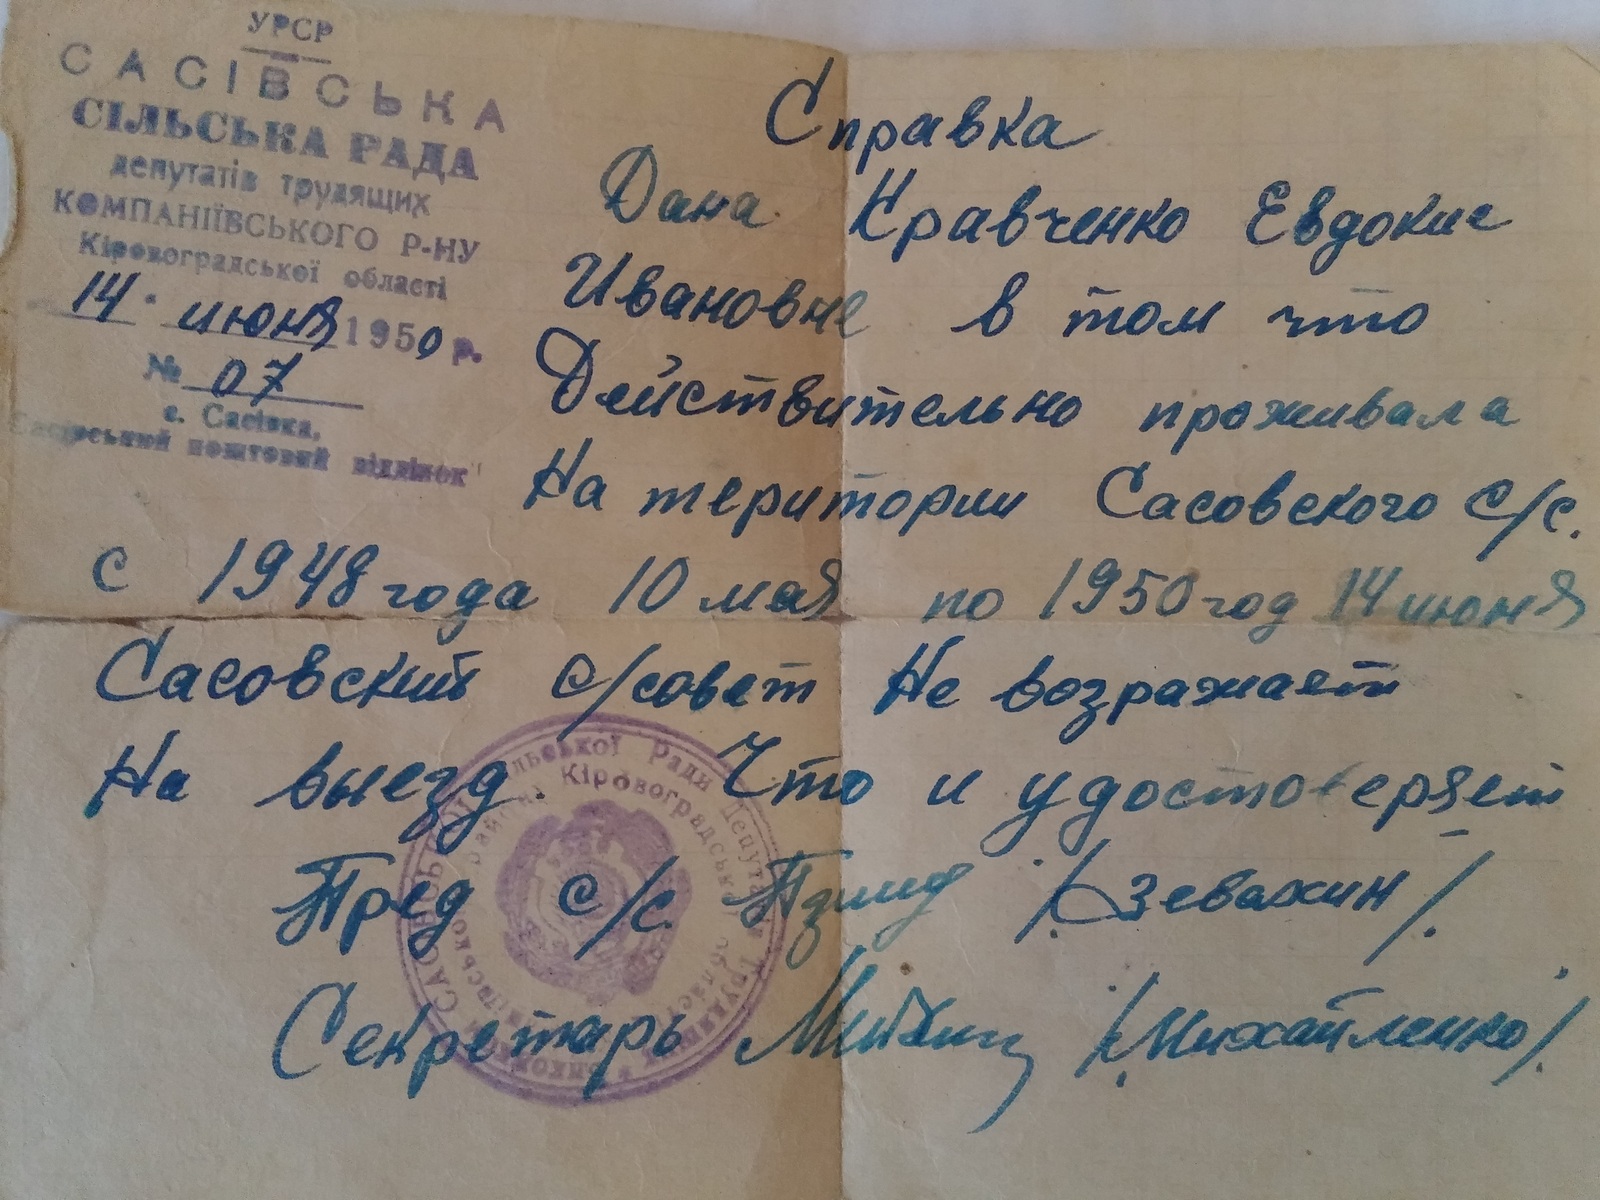 УРСР
САСІВСЬКА
СІЛЬСЬКА РАДА
депутатів трудящих
КОМПАНІЇВСЬКОГО Р-НУ
Кіровоградської області
14 июня 1950 р.
№ 07
с. Сасівка,
Сасівський поштовий відділок
Справка
Дана Кравченко Евдокие
Ивановне в том что
Действительно проживала
На територии Сасовского с/с.
с 1948 года 10 мая по 1950 год 14 июня
Сасовский с/совет Не возражает
На выезд. Что и удостоверяет
Пред с/с. /Зевахин/.
Секретарь /Михайленко/.
Сільської Ради Депутатів Трудящих
Кіровоградської області